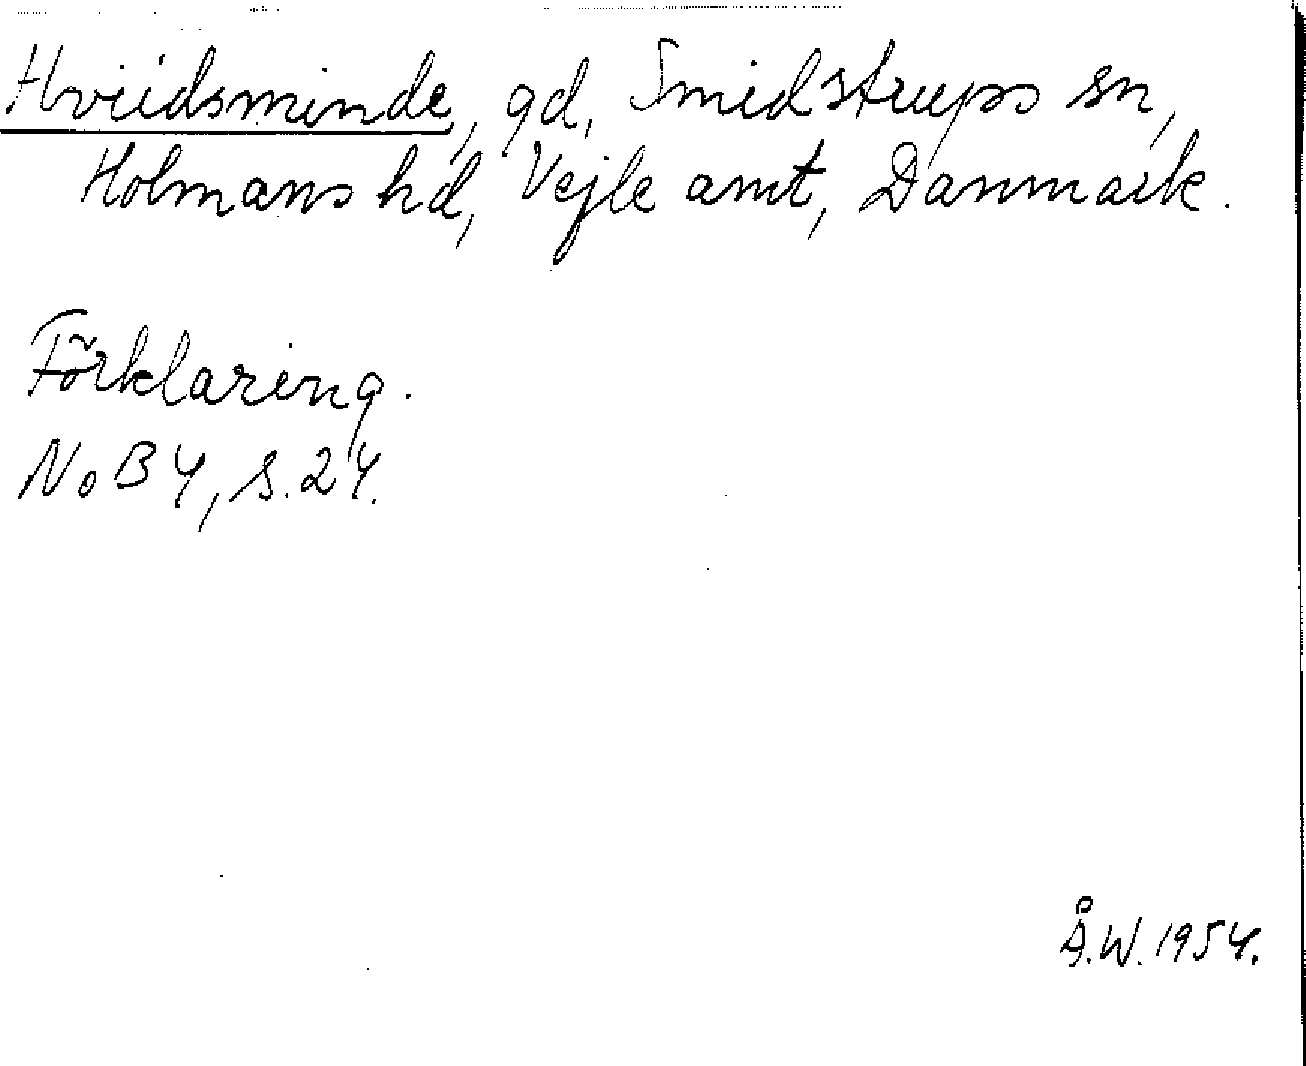 Hviidsminde, gd, Smidstrups sn,
Holmans hd, Vejle amt, Danmark.
Förklaring.
NoB 4, s. 24.
Å.W. 1954.